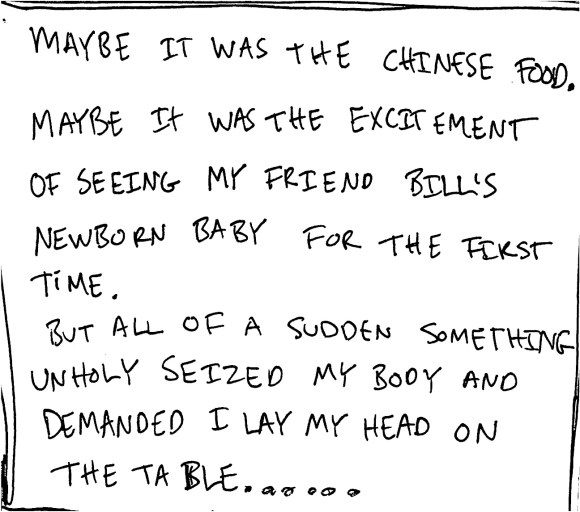 MAYBE IT WAS THE CHINESE FOOD.
MAYBE IT WAS THE EXCITEMENT
OF SEEING MY FRIEND BILL'S
NEWBORN BABY FOR THE FIRST
TIME.
BUT ALL OF A SUDDEN SOMETHING
UNHOLY SEIZED MY BODY AND
DEMANDED I LAY MY HEAD ON
THE TABLE......